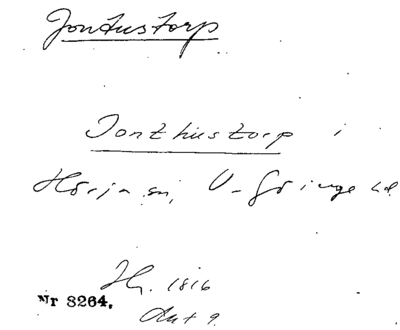 Jontustorp
Jonthustorp i
Hörja sn, V-Göinge hd
Hg. 1816
Nr 8264.